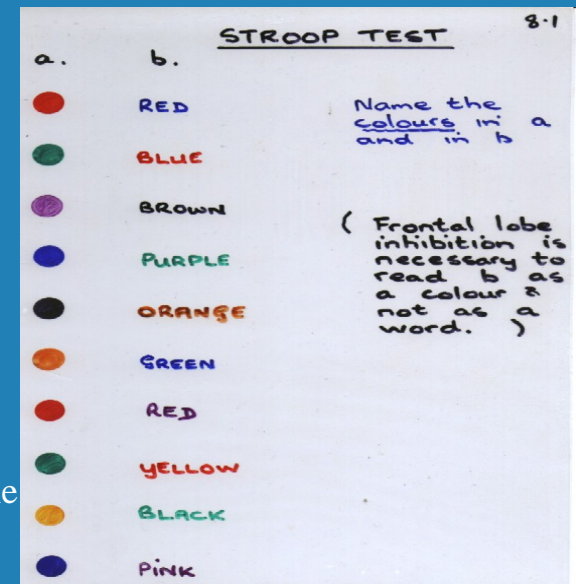 8.1
STROOP TEST
a. b.
RED
BLUE
BROWN
PURPLE
ORANGE
GREEN
RED
YELLOW
BLACK
PINK
Name the
colours in a
and in b
( Frontal lobe
inhibition is
necessary to
read b as
a colour &
not as a
word. )
e